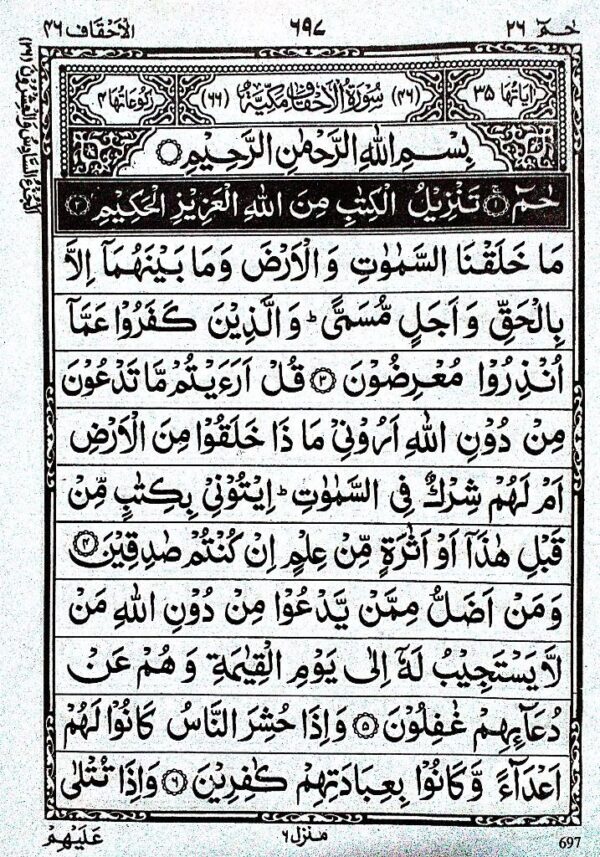 حٰمٓ ٢٦
٦٩٧
الاحقاف ٤٦
اٰیَاتُهَا ٣٥
(٤٦) سُوْرَةُ الْاَحْقَافِ مَكِّیَّةٌ (٦٦)
رُكُوْعَاتُهَا ٤
بِسْمِ اللهِ الرَّحْمٰنِ الرَّحِیْمِ
حٰمٓ ۚ ١ تَنْزِیْلُ الْكِتٰبِ مِنَ اللهِ الْعَزِیْزِ الْحَكِیْمِ ٢
مَا خَلَقْنَا السَّمٰوٰتِ وَ الْاَرْضَ وَ مَا بَیْنَهُمَاۤ اِلَّا
بِالْحَقِّ وَ اَجَلٍ مُّسَمًّی ؕ وَ الَّذِیْنَ كَفَرُوْا عَمَّاۤ
اُنْذِرُوْا مُعْرِضُوْنَ ٣ قُلْ اَرَءَیْتُمْ مَّا تَدْعُوْنَ
مِنْ دُوْنِ اللهِ اَرُوْنِیْ مَا ذَا خَلَقُوْا مِنَ الْاَرْضِ
اَمْ لَهُمْ شِرْكٌ فِی السَّمٰوٰتِ ؕ اِیْتُوْنِیْ بِكِتٰبٍ مِّنْ
قَبْلِ هٰذَاۤ اَوْ اَثٰرَةٍ مِّنْ عِلْمٍ اِنْ كُنْتُمْ صٰدِقِیْنَ ٤
وَ مَنْ اَضَلُّ مِمَّنْ یَّدْعُوْا مِنْ دُوْنِ اللهِ مَنْ
لَّا یَسْتَجِیْبُ لَهٗۤ اِلٰی یَوْمِ الْقِیٰمَةِ وَ هُمْ عَنْ
دُعَآىِٕهِمْ غٰفِلُوْنَ ٥ وَ اِذَا حُشِرَ النَّاسُ كَانُوْا لَهُمْ
اَعْدَآءً وَّ كَانُوْا بِعِبَادَتِهِمْ كٰفِرِیْنَ ٦ وَ اِذَا تُتْلٰی
عَلَیْهِمْ
منزل ٦
697